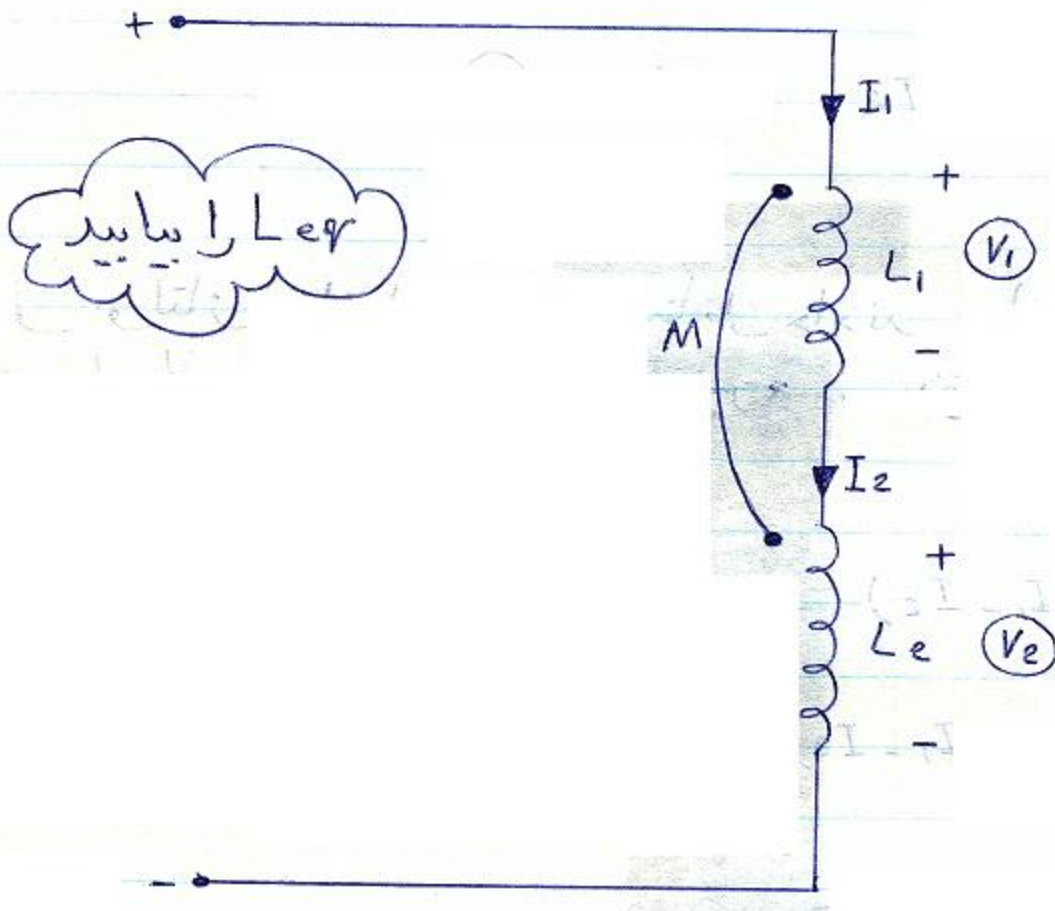 +
I1
Leq را بیابید
+
V1
L1
M
-
I2
+
L2
V2
-
-